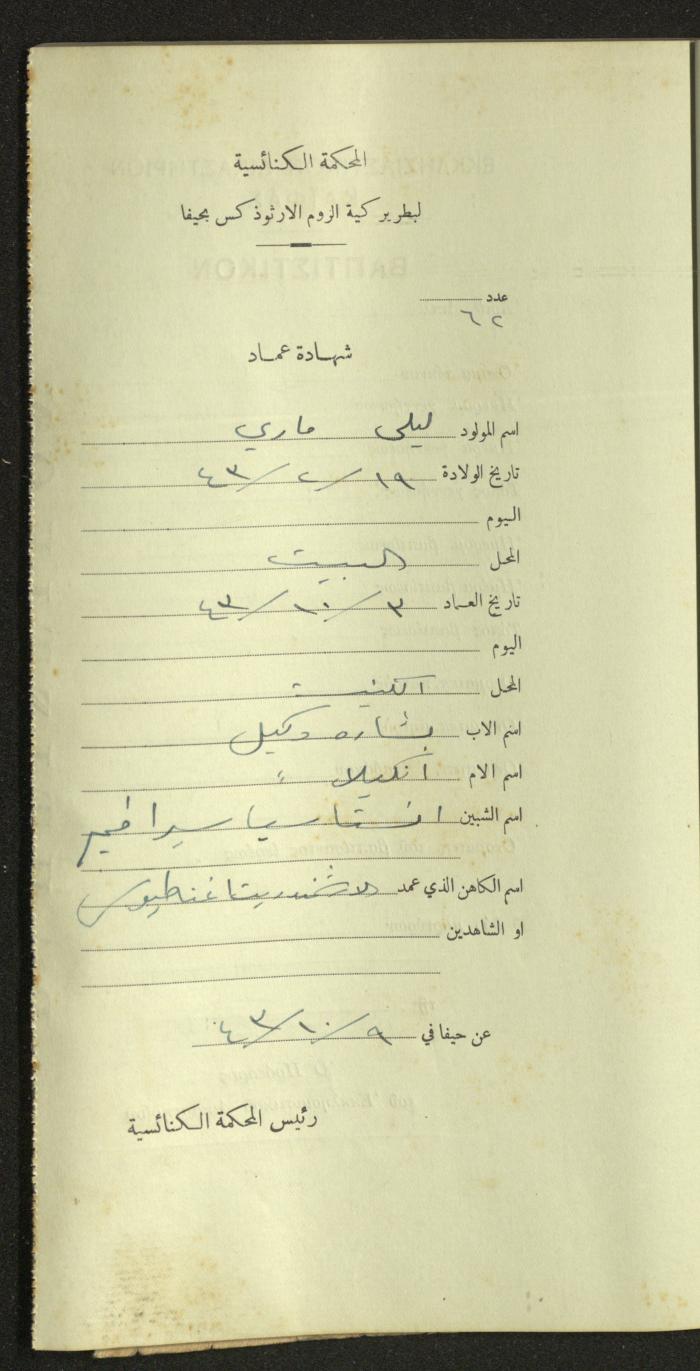 المحكمة الكنائسية
لبطريركية الروم الارثوذكس بحيفا
عدد
٦٢
شهادة عماد
اسم المولود ليلى ماري
تاريخ الولادة ١٩/٢/٤٣
اليوم
المحل البيت
تاريخ العماد ٣/١٠/٤٣
اليوم
المحل الكنيسة
اسم الاب بشاره وكيل
اسم الام انكيلا
اسم الشبين انستاسيا سيرافيم
اسم الكاهن الذي عمد الارشمندريت اغناطيوس
او الشاهدين
عن حيفا في ٩/١٠/٤٣
رئيس المحكمة الكنائسية